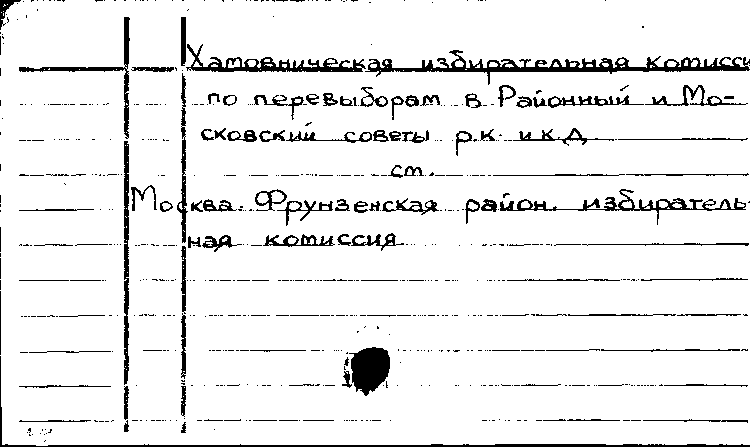 Хамовническая избирательная комисси
по перевыборам в Районный и Мо-
сковский советы р.к. и к.д.
см.
Москва. Фрунзенская район. избиратель-
ная комиссия